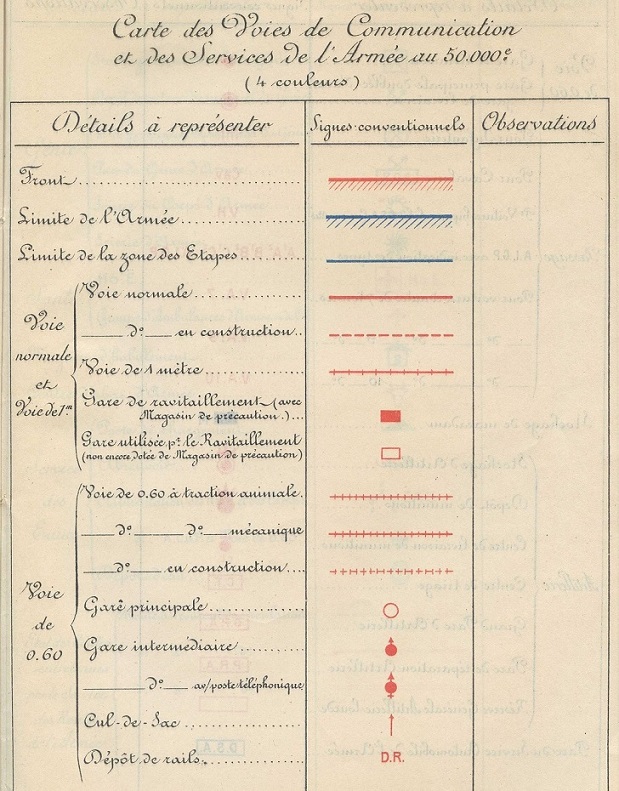 Carte des Voies de Communication
et des Services de l'Armée au 50.000e
(4 couleurs)
Détails à représenter Signes conventionnels Observations
Front
Limite de l'Armée
Limite de la zone des Etapes
Voie normale et Voie de 1m
Voie normale
do en construction
Voie de 1 mètre
Gare de ravitaillement (avec
Magasin de précaution.)
Gare utilisée pr le Ravitaillement
(non encore dotée de Magasin de précaution)
Voie de 0.60
Voie de 0.60 à traction animale
do do mécanique
do en construction
Gare principale
Gare intermédiaire
do av/poste téléphonique
Cul-de-Sac
Dépôt de rails D.R.